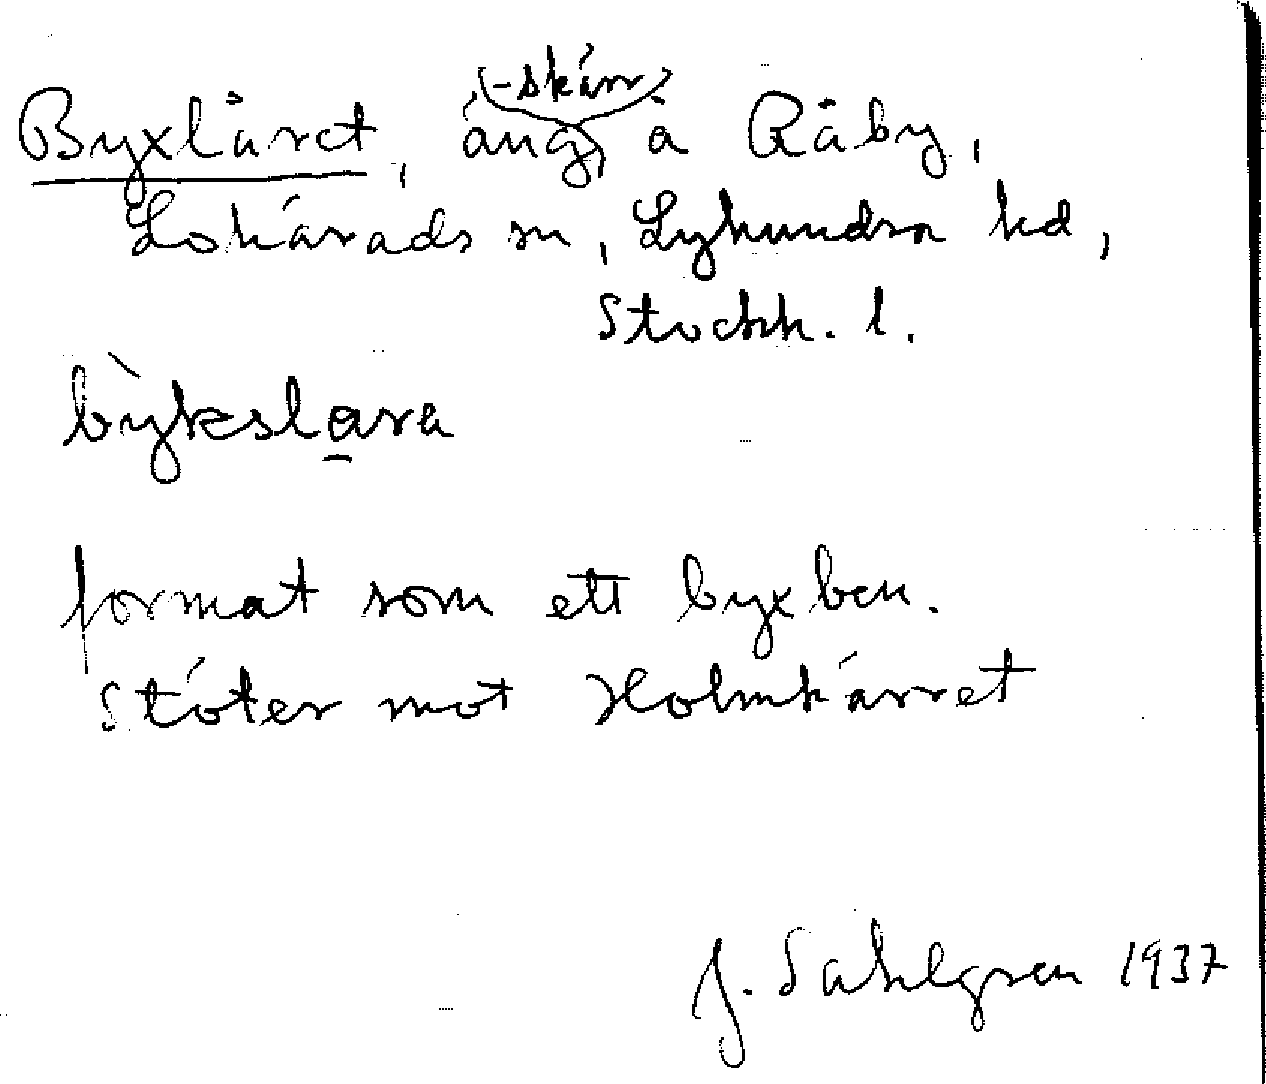 Byxlåret, äng (-skärr) å Råby,
Lohärads sn, Lyhundra hd,
Stockh. l.
bỳksla̱ra
format som ett byxben.
Stöter mot Holmkärret
J. Sahlgren 1937